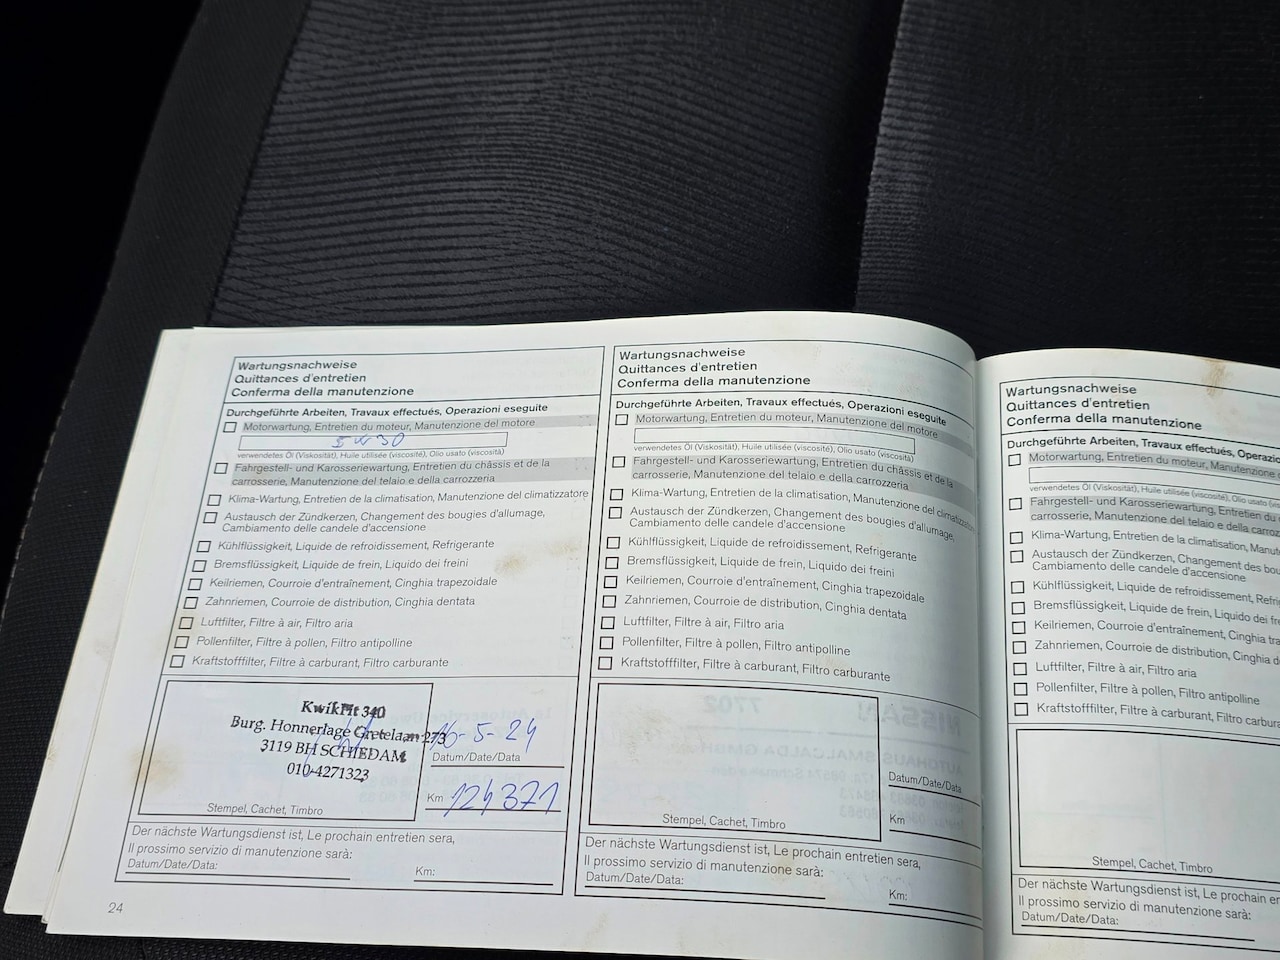 Wartungsnachweise
Quittances d'entretien
Conferma della manutenzione
Durchgeführte Arbeiten, Travaux effectués, Operazioni eseguite
Motorwartung, Entretien du moteur, Manutenzione del motore
5W30
verwendetes Öl (Viskosität), Huile utilisée (viscosité), Olio usato (viscosità)
Fahrgestell- und Karosseriewartung, Entretien du châssis et de la
carrosserie, Manutenzione del telaio e della carrozzeria
Klima-Wartung, Entretien de la climatisation, Manutenzione del climatizzatore
Austausch der Zündkerzen, Changement des bougies d'allumage,
Cambiamento delle candele d'accensione
Kühlflüssigkeit, Liquide de refroidissement, Refrigerante
Bremsflüssigkeit, Liquide de frein, Liquido dei freini
Keilriemen, Courroie d'entraînement, Cinghia trapezoidale
Zahnriemen, Courroie de distribution, Cinghia dentata
Luftfilter, Filtre à air, Filtro aria
Pollenfilter, Filtre à pollen, Filtro antipolline
Kraftstofffilter, Filtre à carburant, Filtro carburante
KwikFit 340
Burg. Honnerlage Gretelaan 273
3119 BH SCHIEDAM
010-4271323
Stempel, Cachet, Timbro
16-5-24
Datum/Date/Data
Km 124371
Der nächste Wartungsdienst ist, Le prochain entretien sera,
Il prossimo servizio di manutenzione sarà:
Datum/Date/Data:
Km:
24
Wartungsnachweise
Quittances d'entretien
Conferma della manutenzione
Durchgeführte Arbeiten, Travaux effectués, Operazioni eseguite
Motorwartung, Entretien du moteur, Manutenzione del motore
verwendetes Öl (Viskosität), Huile utilisée (viscosité), Olio usato (viscosità)
Fahrgestell- und Karosseriewartung, Entretien du châssis et de la
carrosserie, Manutenzione del telaio e della carrozzeria
Klima-Wartung, Entretien de la climatisation, Manutenzione del climatizzatore
Austausch der Zündkerzen, Changement des bougies d'allumage,
Cambiamento delle candele d'accensione
Kühlflüssigkeit, Liquide de refroidissement, Refrigerante
Bremsflüssigkeit, Liquide de frein, Liquido dei freini
Keilriemen, Courroie d'entraînement, Cinghia trapezoidale
Zahnriemen, Courroie de distribution, Cinghia dentata
Luftfilter, Filtre à air, Filtro aria
Pollenfilter, Filtre à pollen, Filtro antipolline
Kraftstofffilter, Filtre à carburant, Filtro carburante
Stempel, Cachet, Timbro
Datum/Date/Data
Km
Der nächste Wartungsdienst ist, Le prochain entretien sera,
Il prossimo servizio di manutenzione sarà:
Datum/Date/Data:
Km:
Wartungsnachweise
Quittances d'entretien
Conferma della manutenzione
Durchgeführte Arbeiten, Travaux effectués,
Motorwartung, Entretien du moteur, Manutenzione
verwendetes Öl (Viskosität), Huile utilisée (viscosité), Olio
Fahrgestell- und Karosseriewartung, Entretien du
carrosserie, Manutenzione del telaio e della
Klima-Wartung, Entretien de la climatisation,
Austausch der Zündkerzen, Changement des
Cambiamento delle candele d'accensione
Kühlflüssigkeit, Liquide de refroidissement,
Bremsflüssigkeit, Liquide de frein, Liquido dei
Keilriemen, Courroie d'entraînement, Cinghia
Zahnriemen, Courroie de distribution, Cinghia
Luftfilter, Filtre à air, Filtro aria
Pollenfilter, Filtre à pollen, Filtro antipolline
Kraftstofffilter, Filtre à carburant, Filtro
Stempel, Cachet, Timbro
Der nächste Wartungsdienst ist, Le prochain
Il prossimo servizio di manutenzione sarà:
Datum/Date/Data: